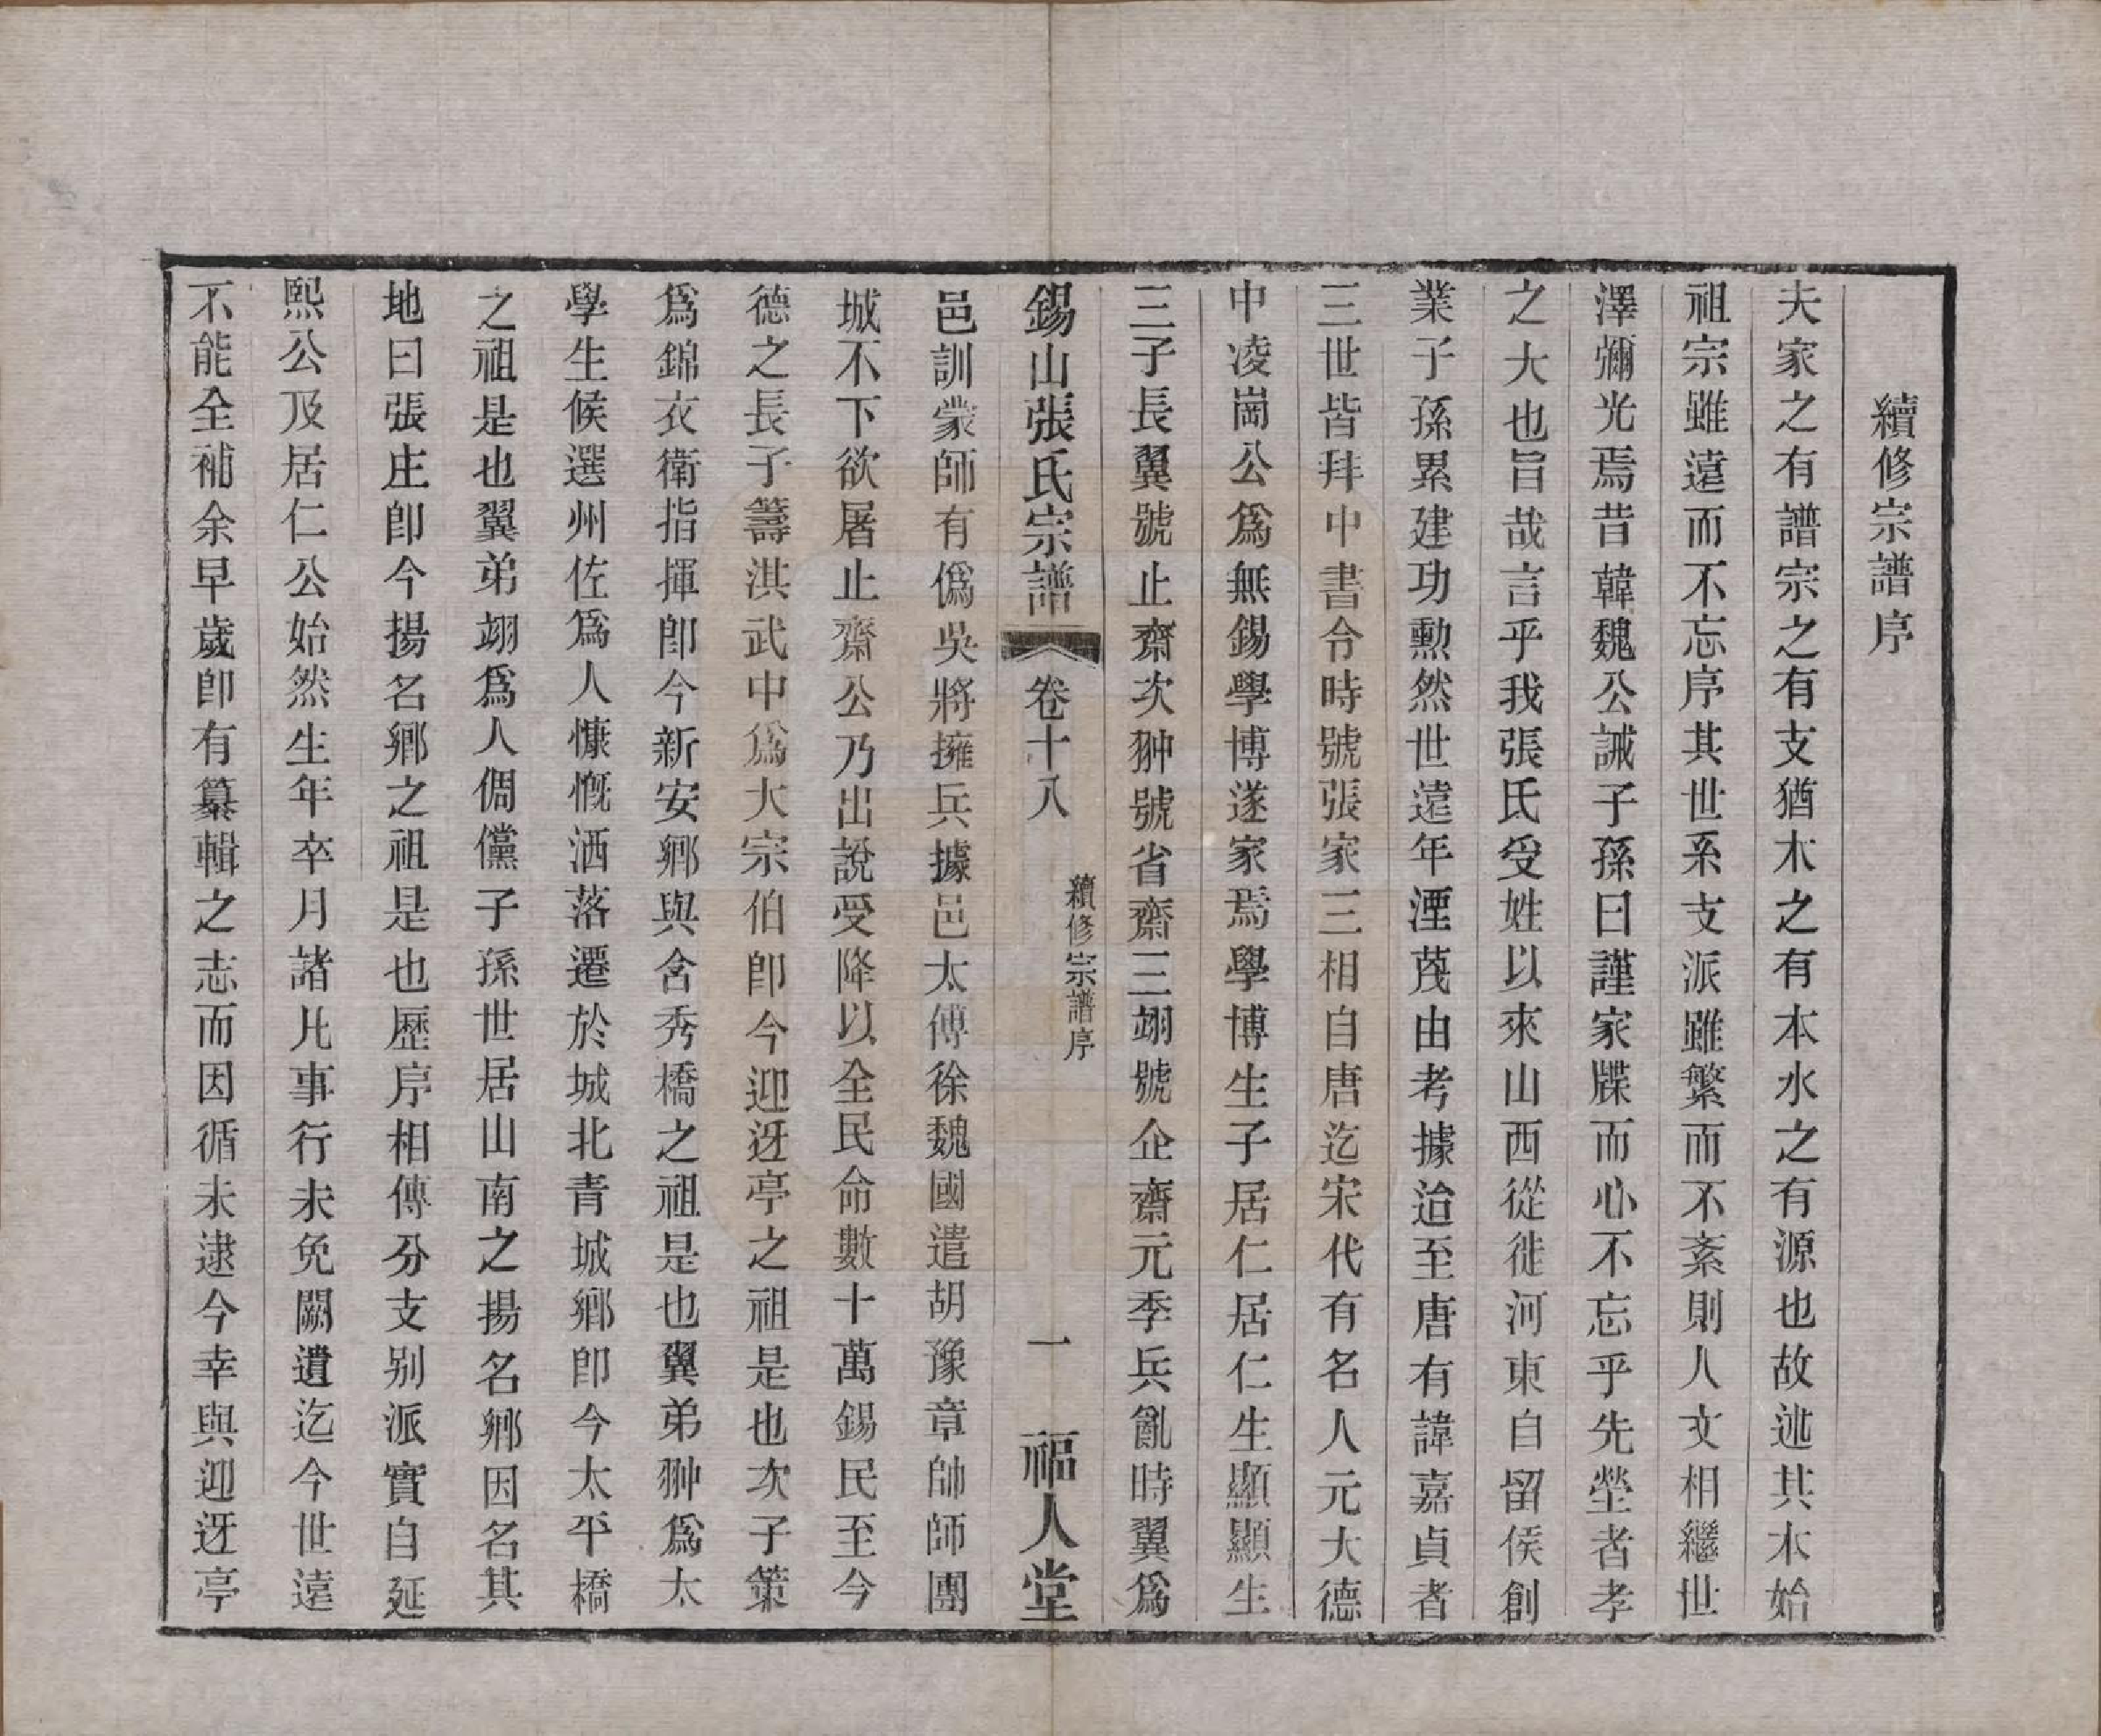 續修宗譜序
夫家之有譜宗之有支猶木之有本水之有源也故述其木始
祖宗雖遠而不忘序其世系支派雖繁而不紊則人文相繼世
澤彌光焉昔韓魏公誡子孫曰謹家牒而心不忘乎先塋者孝
之大也旨哉言乎我張氏受姓以來山西從徙河東自留侯創
業子孫累建功勲然世遠年湮莫由考據迨至唐有諱嘉貞者
三世皆拜中書令時號張家三相自唐迄宋代有名人元大德
中凌崗公爲無錫學博遂家焉學博生子居仁居仁生顯顯生
三子長翼號止齋次翀號省齋三翊號企齋元季兵亂時翼爲
錫山張氏宗譜 卷十八 續修宗譜序 一 福人堂
邑訓蒙師有僞吳將擁兵據邑太傅徐魏國遣胡豫章帥師團
城不下欲屠止齋公乃出說受降以全民命數十萬錫民至今
德之長子籌洪武中爲大宗伯卽今迎迓亭之祖是也次子策
爲錦衣衛指揮卽今新安鄉與含秀橋之祖是也翼弟翀爲太
學生候選州佐爲人慷慨洒落遷於城北青城鄉卽今太平橋
之祖是也翼弟翊爲人倜儻子孫世居山南之揚名鄉因名其
地曰張庄卽今揚名鄉之祖是也歷序相傳分支别派實自延
熙公及居仁公始然生年卒月諸凡事行未免闕遺迄今世遠
不能全補余早歲卽有纂輯之志而因循未逮今幸與迎迓亭